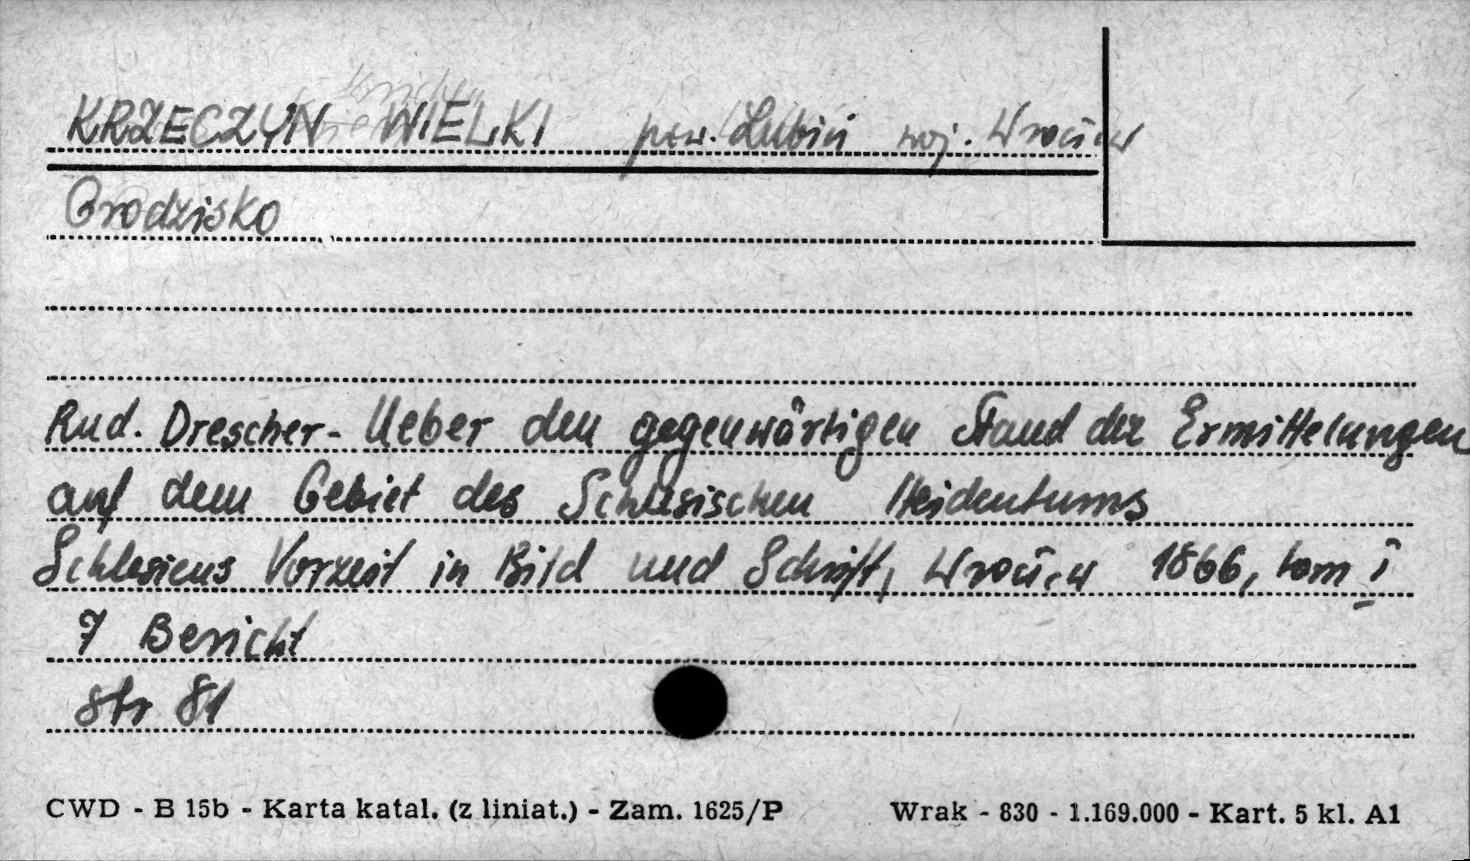 KRZECZYN WIELKI pow. Lubin woj. Wrocław
Grodzisko
Rud. Drescher - Ueber den gegenwärtigen Stand der Ermittelungen
auf dem Gebiet des Schlesischen Heidentums
Schlesiens Vorzeit in Bild und Schrift, Wrocław 1866, tom I
7 Bericht
str 81
CWD - B 15b - Karta katal. (z liniat.) - Zam. 1625/P Wrak - 830 - 1.169.000 - Kart. 5 kl. A1